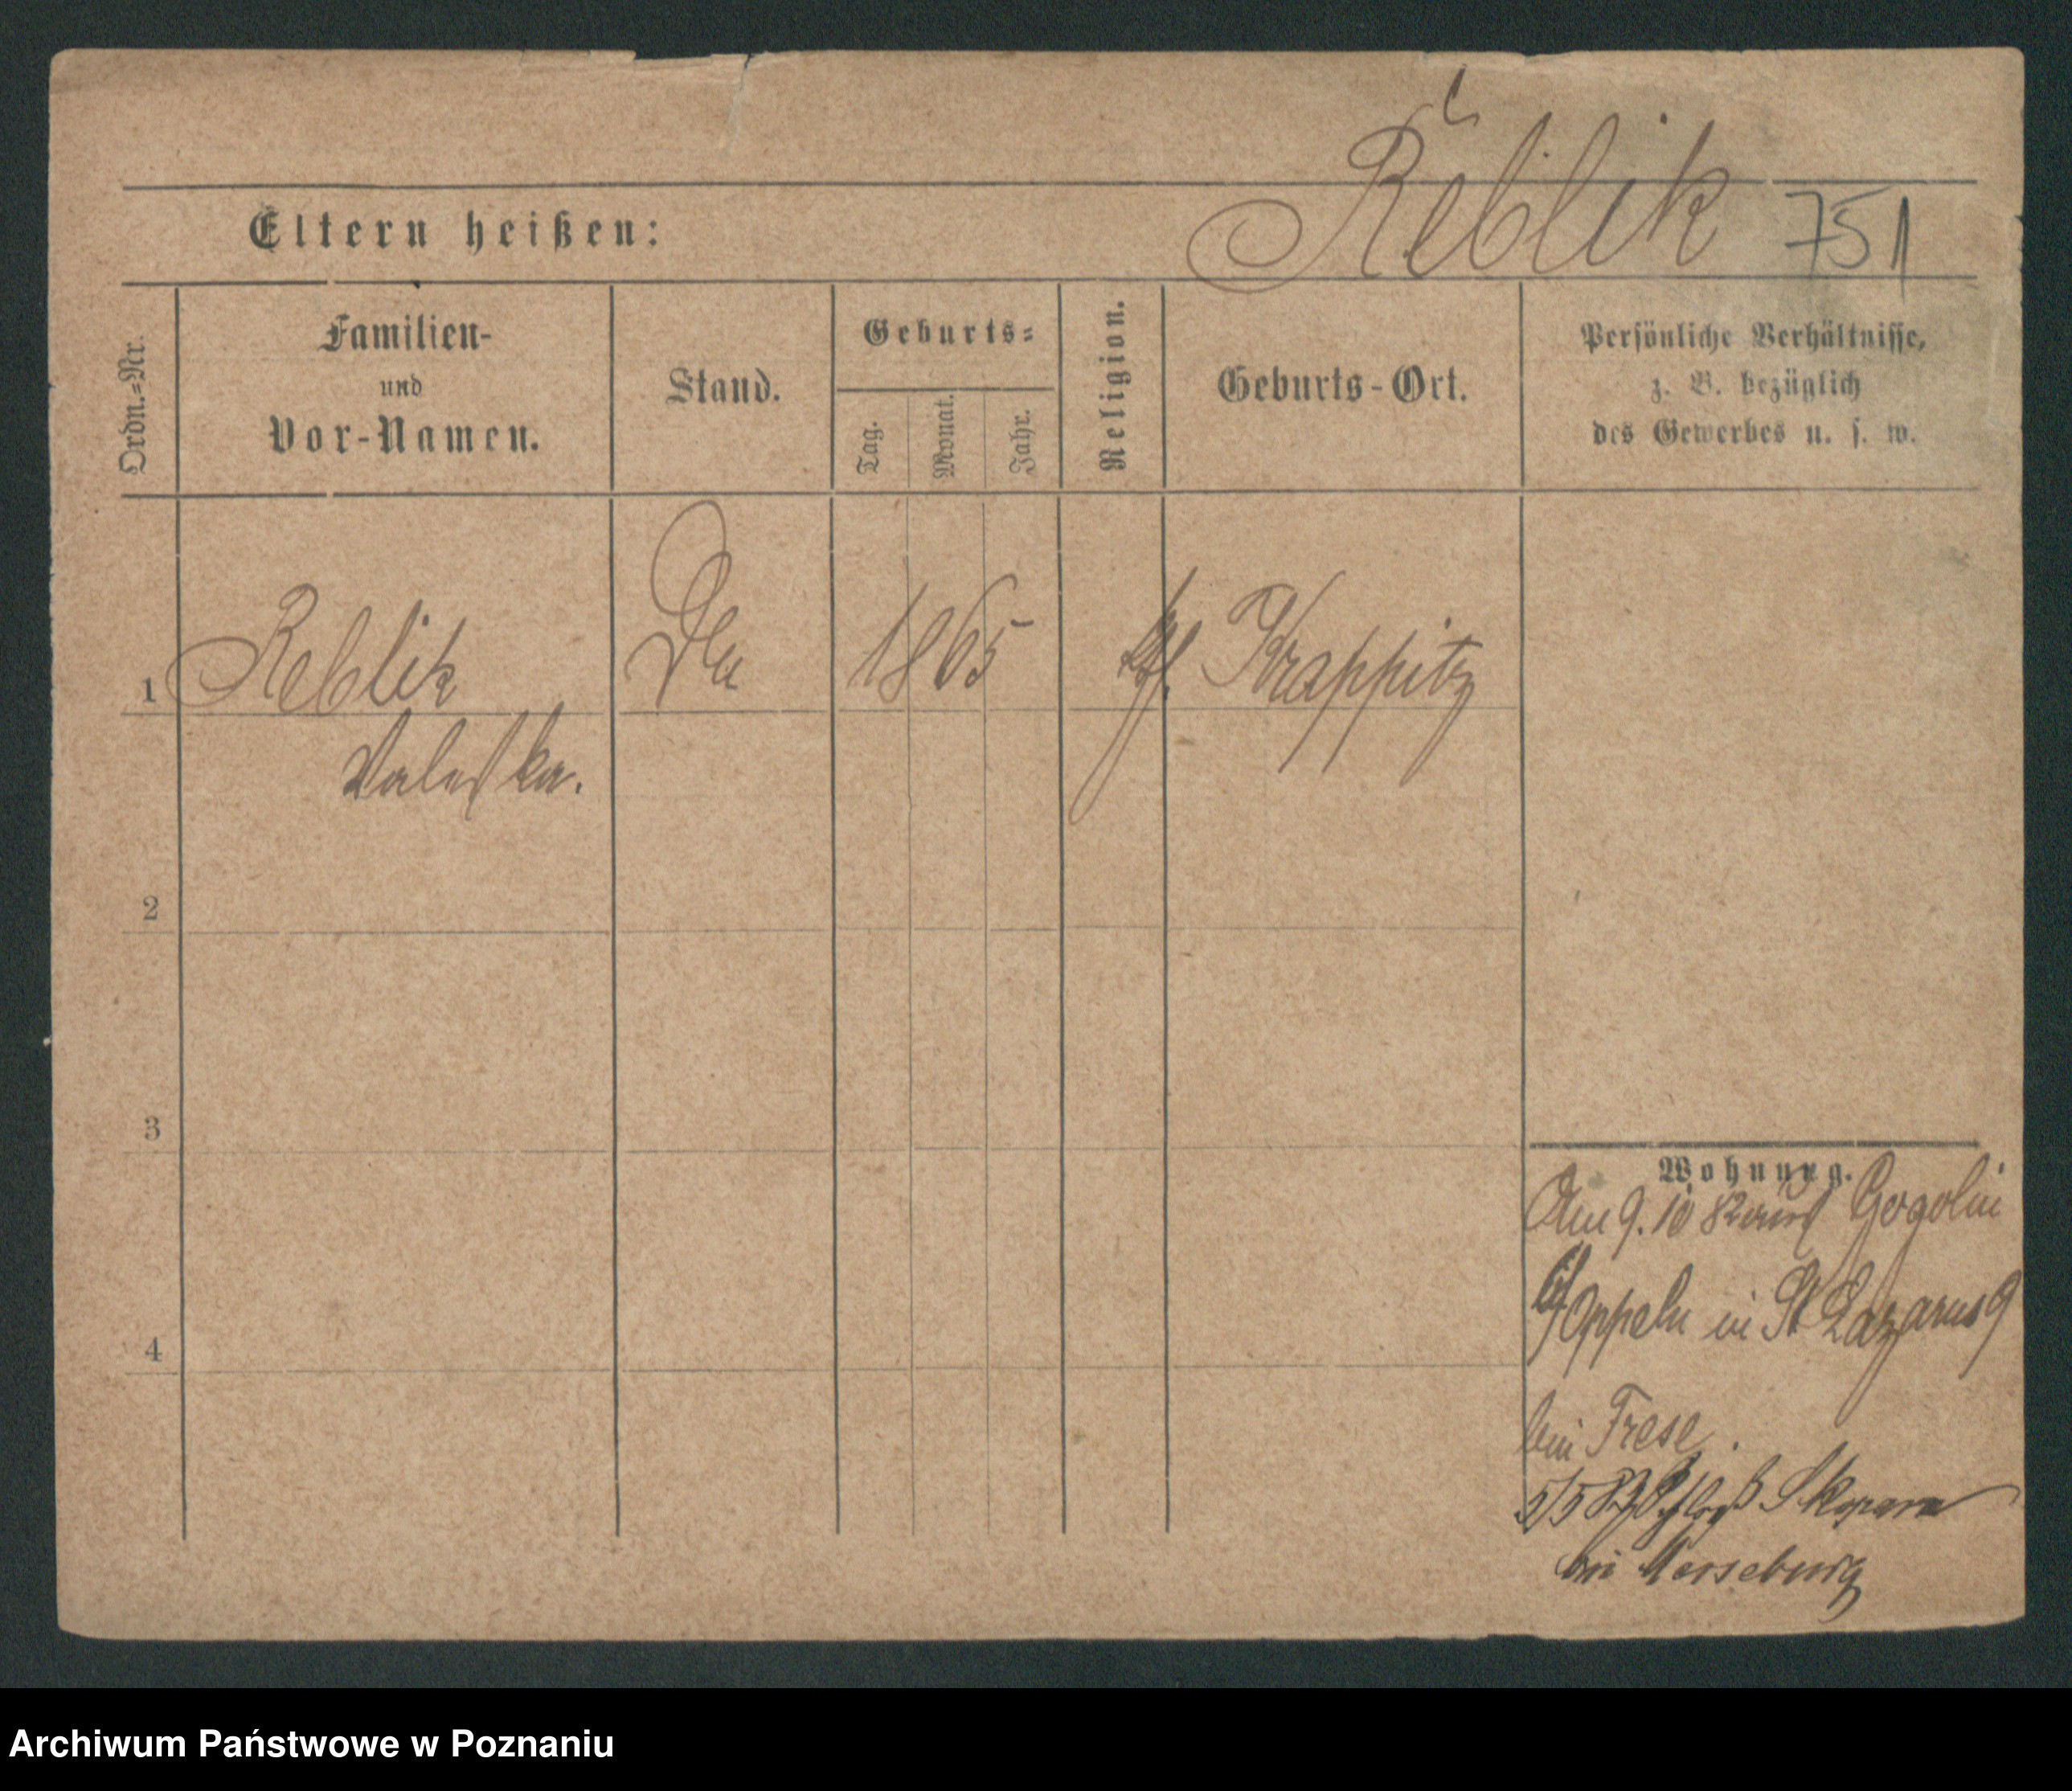 Reblik 751
Eltern heißen:
Ordn.=Nr.
Familien-
und
Vor-Namen.
Stand.
Geburts=
Tag.
Monat.
Jahr.
Religion.
Geburts-Ort.
Persönliche Verhältnisse,
z. B. bezüglich
des Gewerbes u. s. w.
1 Reblik 1865 Krappitz
Valeska.
2
3
4
Wohnung.
Am 9.10 82 aus Gogolin
Oppeln in St Lazarus 9
bei Frese.
Schloß
bei Merseburg
Archiwum Państwowe w Poznaniu